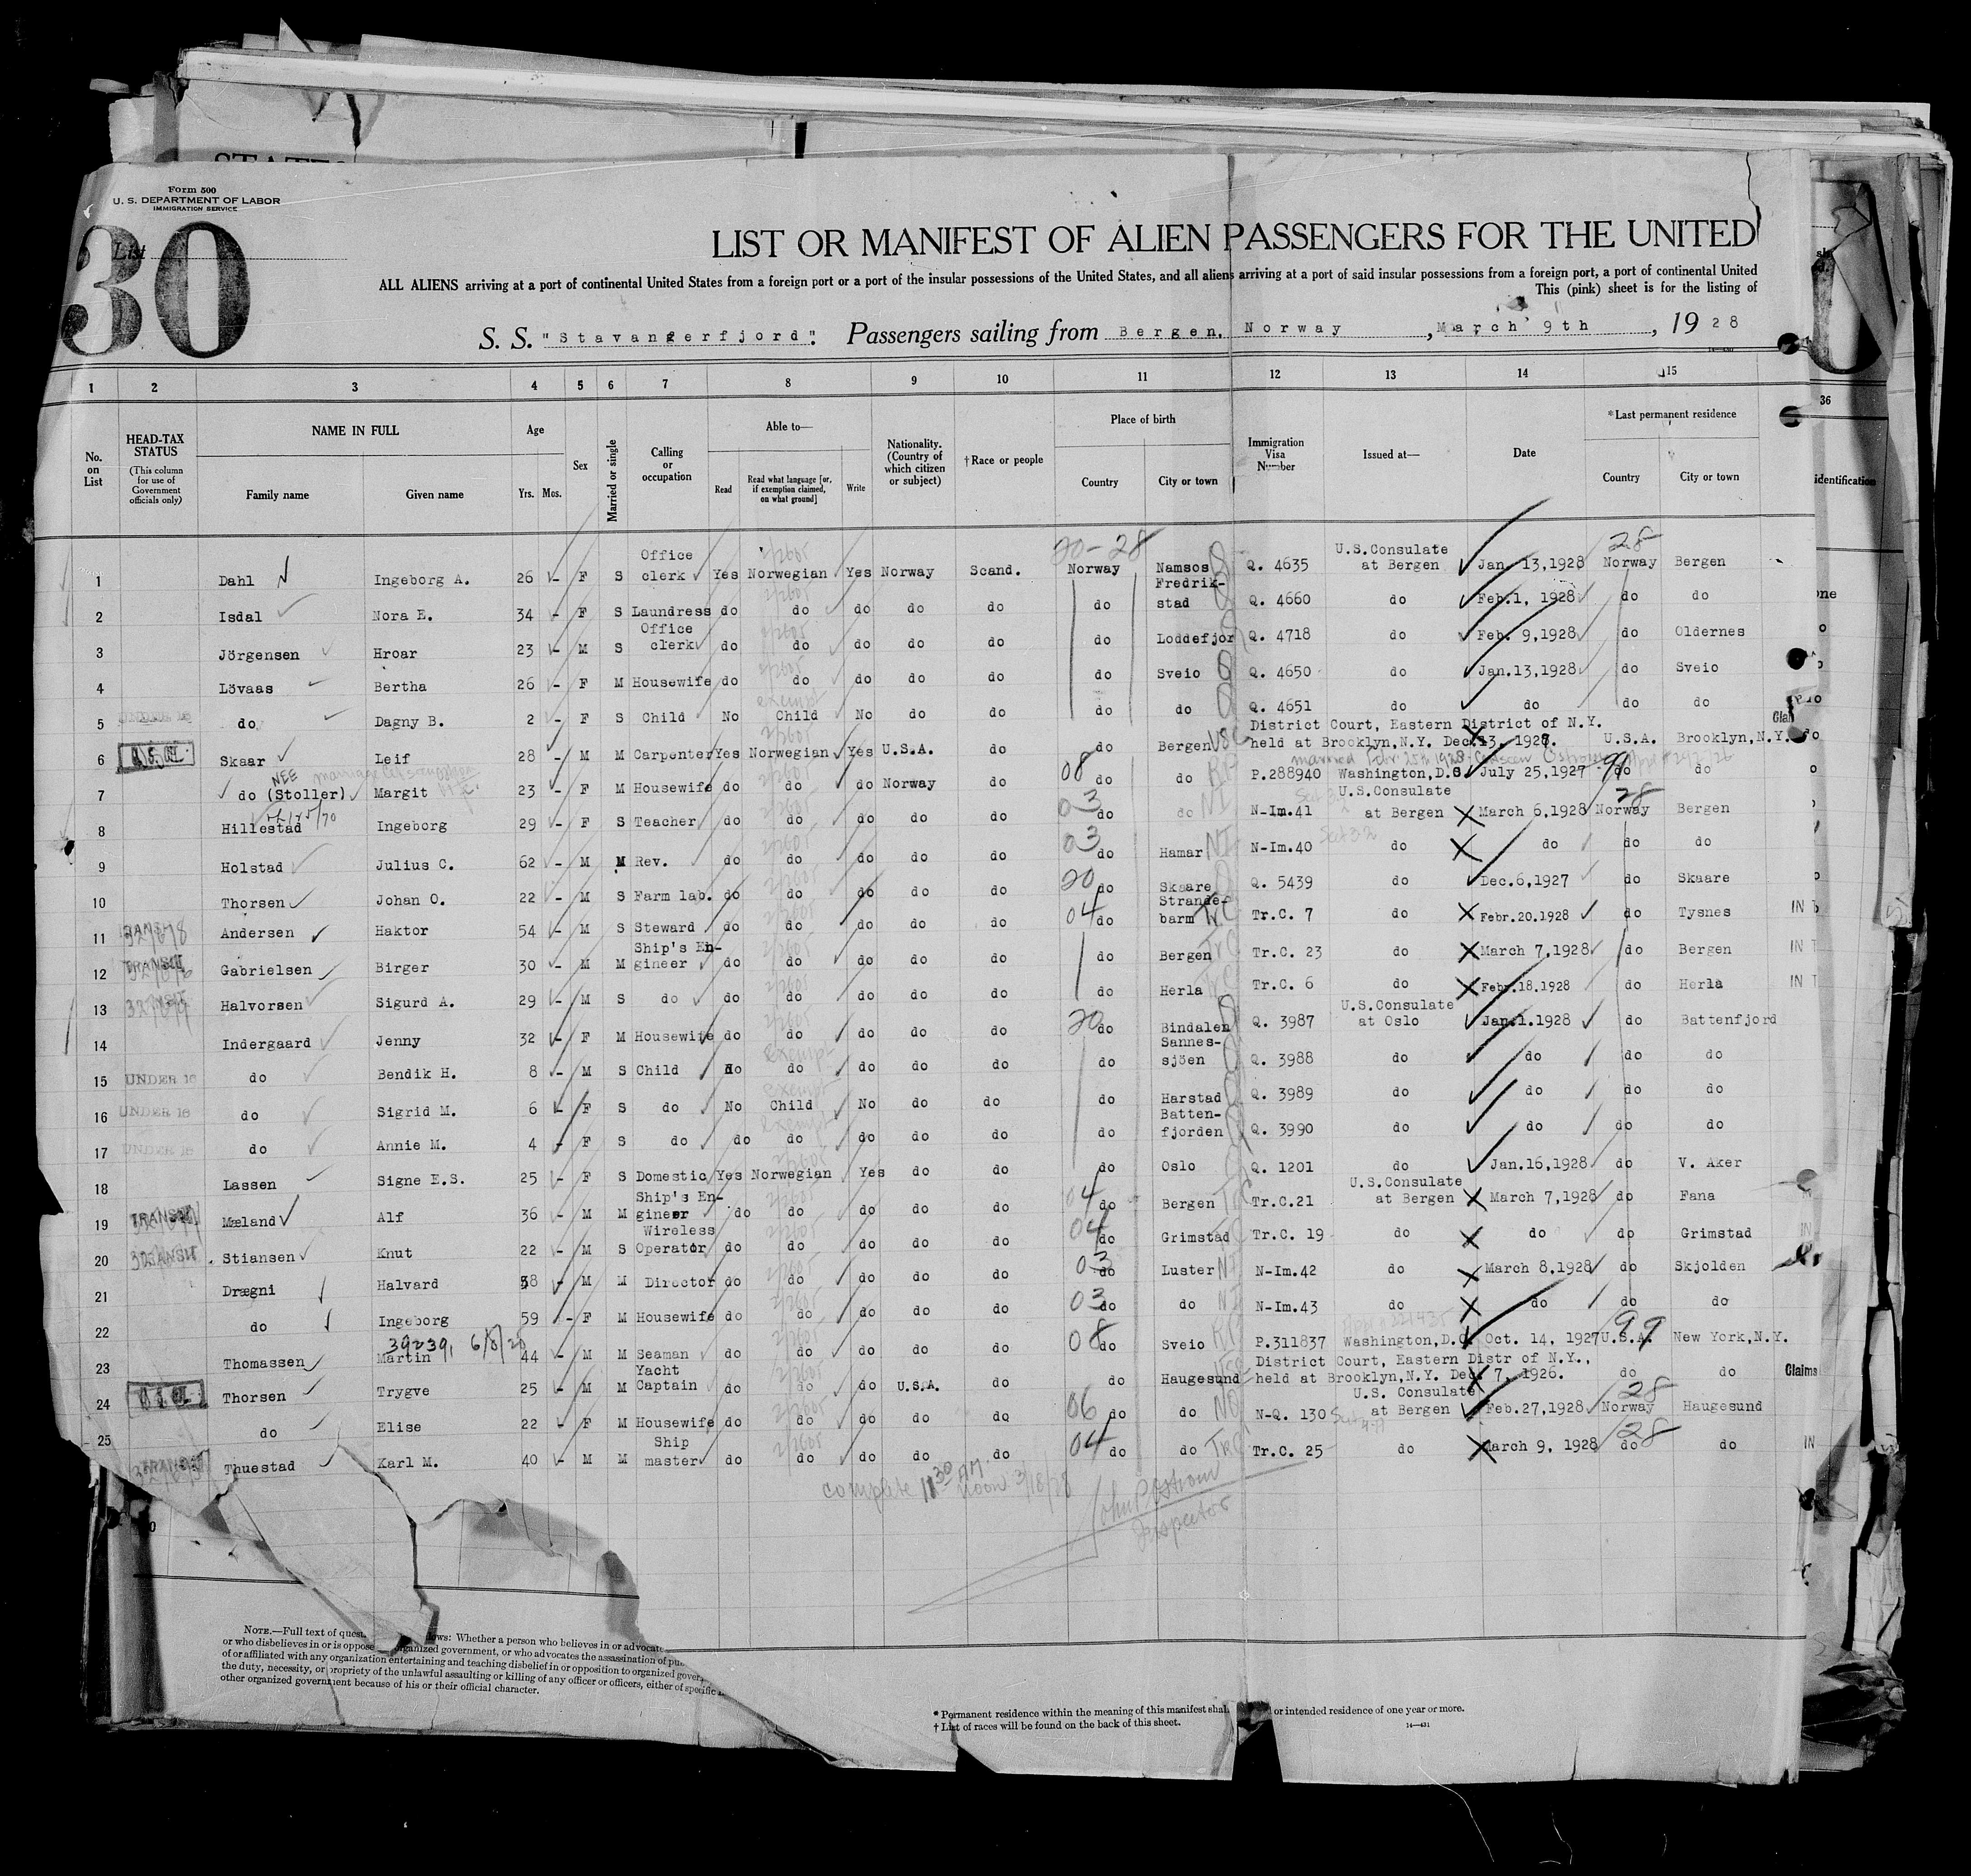 Form 500
U. S. DEPARTMENT OF LABOR
IMMIGRATION SERVICE
List
30
LIST OR MANIFEST OF ALIEN PASSENGERS FOR THE UNITED
ALL ALIENS arriving at a port of continental United States from a foreign port or a port of the insular possessions of the United States, and all aliens arriving at a port of said insular possessions from a foreign port, a port of continental United
This (pink) sheet is for the listing of
S. S. "Stavangerfjord". Passengers sailing from Bergen, Norway, March 9th, 1928
1 2 3 4 5 6 7 8 9 10 11 12 13 14 15
36
No. on List
HEAD-TAX STATUS
(This column for use of Government officials only)
NAME IN FULL
Family name Given name
Age
Yrs. Mos.
Sex
Married or single
Calling or occupation
Able to—
Read
Read what language [or, if exemption claimed, on what ground]
Write
Nationality. (Country of which citizen or subject)
†Race or people
Place of birth
Country City or town
Immigration Visa Number
Issued at—
Date
*Last permanent residence
Country City or town
identification
20-28 28
1 Dahl Ingeborg A. 26 - F S Office clerk Yes Norwegian Yes Norway Scand. Norway Namsos Q. 4635 U.S.Consulate at Bergen Jan. 13,1928 Norway Bergen
2 Isdal Nora E. 34 - F S Laundress do do do do do do Fredrik-stad Q. 4660 do Feb.1, 1928 do do
3 Jörgensen Hroar 23 - M S Office clerk do do do do do do Loddefjor Q. 4718 do Feb. 9,1928 do Oldernes
4 Lövaas Bertha 26 - F M Housewife do do do do do do Sveio Q. 4650 do Jan.13,1928 do Sveio
5 UNDER 16 do Dagny B. 2 - F S Child No Child No do do do do Q. 4651 do do do do
6 Skaar Leif 28 - M M Carpenter Yes Norwegian Yes U.S.A. do do Bergen USC District Court, Eastern District of N.Y. held at Brooklyn,N.Y. Dec.13, 1927. U.S.A. Brooklyn,N.Y.
7 do (Stoller) NEE Margit 23 - F M Housewife do do do Norway do 08 do do P.288940 Washington,D.C. July 25,1927 99 do do
8 Hillestad Ingeborg 29 - F S Teacher do do do do do 03 do do NI N-Im.41 U.S.Consulate at Bergen March 6,1928 28 Norway Bergen
9 Holstad Julius C. 62 - M M Rev. do do do do do 03 do Hamar NI N-Im.40 do do do do
10 Thorsen Johan O. 22 - M S Farm lab. do do do do do 20 do Skaare Q. 5439 do Dec.6,1927 do Skaare
11 Andersen Haktor 54 - M S Steward do do do do do 04 do Strande-barm Tr.C. 7 do Febr.20.1928 do Tysnes
12 TRANSIT Gabrielsen Birger 30 - M M Ship's En-gineer do do do do do do Bergen Tr.C. 23 do March 7,1928 do Bergen
13 Halvorsen Sigurd A. 29 - M S do do do do do do do Herla Tr.C. 6 do Febr.18.1928 do Herla
14 Indergaard Jenny 32 - F M Housewife do do do do do 20 do Bindalen Q. 3987 U.S.Consulate at Oslo Jan.1.1928 do Battenfjord
15 UNDER 16 do Bendik H. 8 - M S Child do do do do do do Sannes-sjöen Q. 3988 do do do do
16 UNDER 16 do Sigrid M. 6 - F S do No Child No do do do Harstad Q. 3989 do do do do
17 UNDER 16 do Annie M. 4 - F S do do do do do do do Batten-fjorden Q. 3990 do do do do
18 Lassen Signe E.S. 25 - F S Domestic Yes Norwegian Yes do do do Oslo Q. 1201 do Jan.16,1928 do V. Aker
19 TRANSIT Mæland Alf 36 - M M Ship's En-gineer do do do do do 04 do Bergen Tr.C.21 U.S.Consulate at Bergen March 7,1928 do Fana
20 TRANSIT Stiansen Knut 22 - M S Wireless Operator do do do do do 04 do Grimstad Tr.C. 19 do do do Grimstad
21 Drægni Halvard 58 - M M Director do do do do do 03 do Luster NI N-Im.42 do March 8,1928 do Skjolden
22 do Ingeborg 59 - F M Housewife do do do do do 03 do do NI N-Im.43 do do do do
23 Thomassen Martin 44 - M M Seaman do do do do do 08 do Sveio P.311837 Washington,D.C. Oct. 14, 1927 99 U.S.A. New York,N.Y.
24 Thorsen Trygve 25 - M M Yacht Captain do do do U.S.A. do do Haugesund District Court, Eastern Distr of N.Y., held at Brooklyn,N.Y. Dec. 7, 1926. do do Claims
25 do Elise 22 - F M Housewife do do do do do 06 do do N-Q. 130 U.S. Consulate at Bergen Feb.27,1928 28 Norway Haugesund
TRANSIT Thuestad Karl M. 40 - M M Ship master do do do do do 04 do do Tr.C. 25 do March 9, 1928 28 do do IN
complete 11 30 AM. noon 3/18/28
Inspector
NOTE.—Full text of quest
ows: Whether a person who believes in or advocate
or who disbelieves in or is oppose
organized government, or who advocates the assassination of pu
of or affiliated with any organization entertaining and teaching disbelief in or opposition to organized gover
the duty, necessity, or propriety of the unlawful assaulting or killing of any officer or officers, either of specific
other organized government because of his or their official character.
* Permanent residence within the meaning of this manifest shal
or intended residence of one year or more.
† List of races will be found on the back of this sheet.
14—431